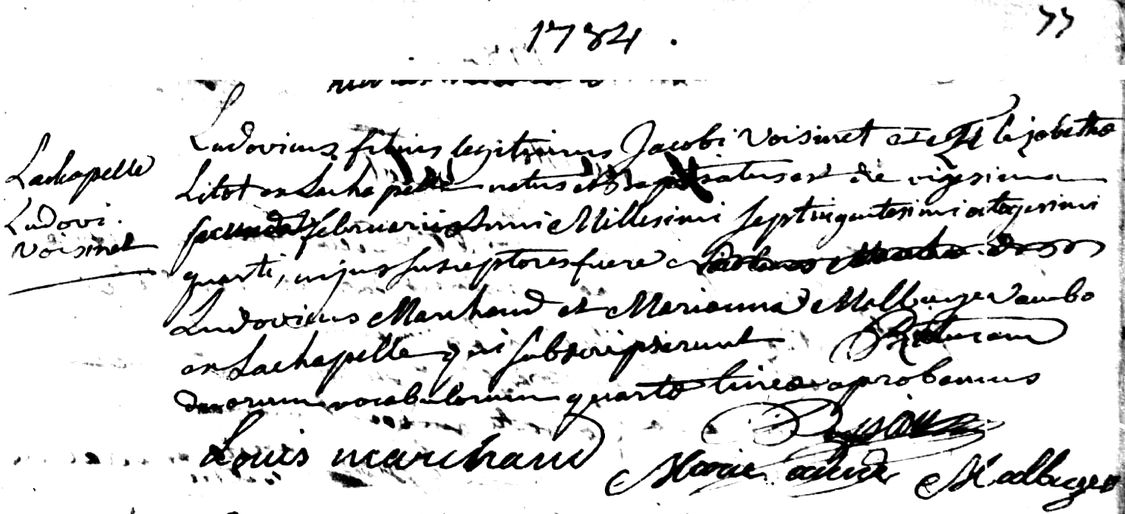 1784.
77
Lachapelle
Ludovi.
Voisinet
Ludovicus filius legitimus Jacobi Voisinet et Elisabethæ
Litot ex Lachapelle natus et baptisatus est die vigesima
secunda februarii anni Millesimi septingentesimi octogesimi
quarti, cujus susceptores fuere
Ludovicus Marchand et Marianna Malbuyer ambo
ex Lachapelle qui subscripserunt Rituram
duorum vocabulorum quarto linea aprobamus
Louis marchand
Marie Malbuyer